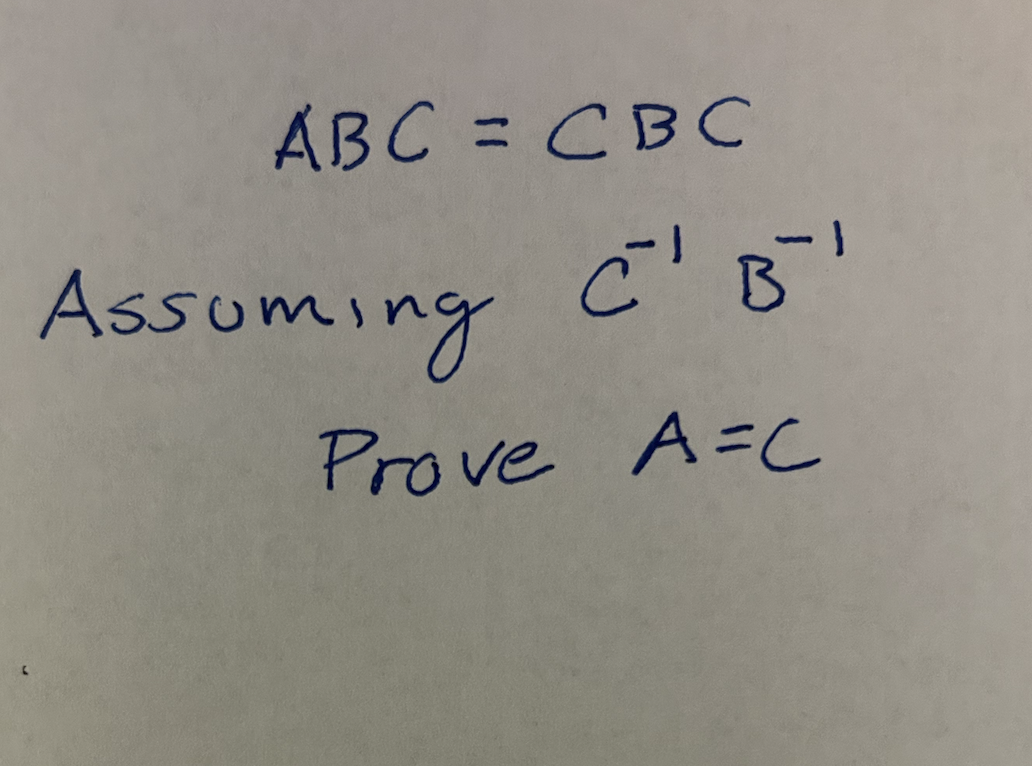 ABC = CBC
Assuming C⁻¹ B⁻¹
Prove A=C